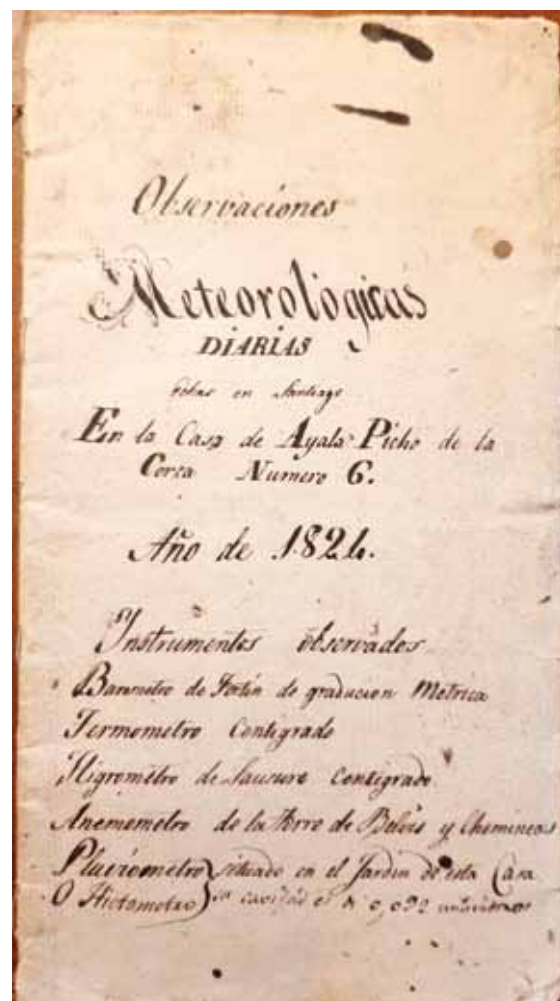 Observaciones
Meteorologicas
DIARIAS
en Santiago
En la Casa de Ayala Picho de la
Cerca Numero 6.
Año de 1824.
Instrumentos observados
Barometro de Fortin de graducion Metrica
Termometro Centigrado
Higrometro de Sausure Centigrado
Anemometro de la Torre de Belvis y Chemineas
Pluviometro situado en el Jardin de esta Casa
O Hietometro su cavidad es de 0,092